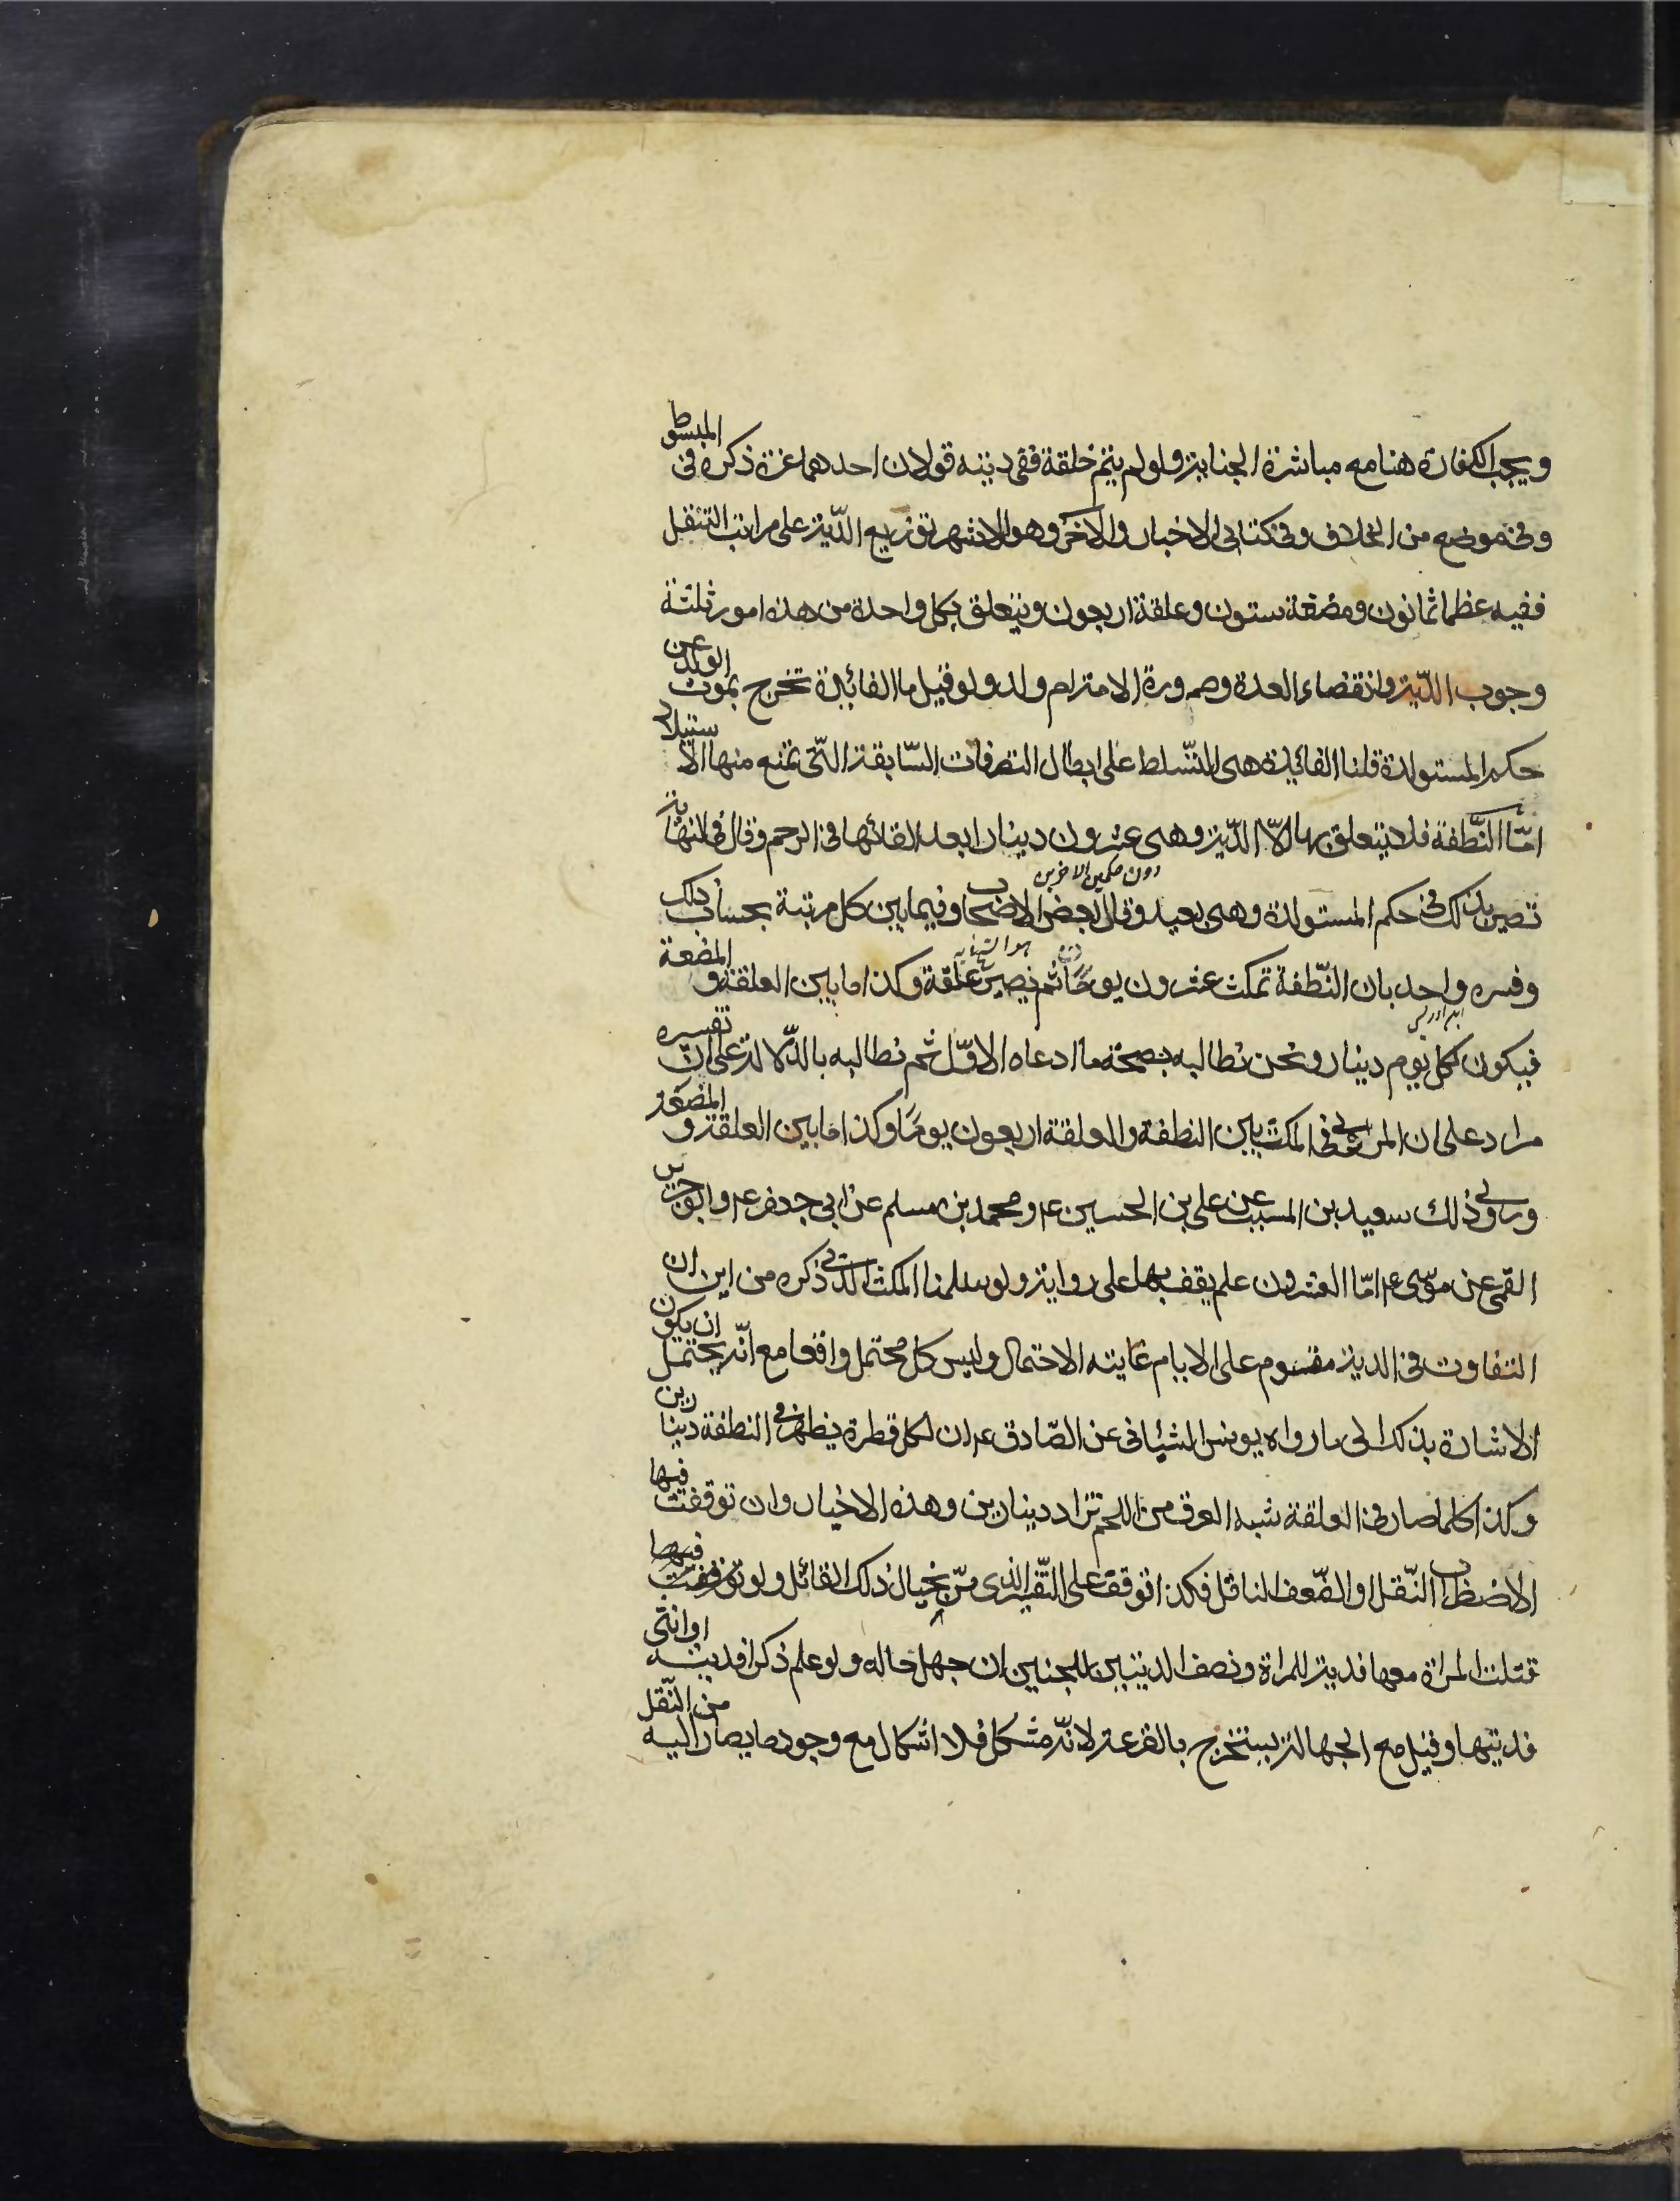 ويجب الكفارة هنا مع مباشرة الجناية ولو لم يتم خلقة ففى ديته قولان احدهما غرة ذكره فى المبسوط
وفى موضع من الخلاف وفى كتابى الاخبار والآخر وهو الاشهر توزيع الدّية على مراتب التنقل
ففيه عظما ثمانون ومضغة ستون وعلقة اربعون ويتعلق بكل واحدة من هذه امور ثلثة
وجوب الدّية وانقضاء العدة وصيرورة الامة ام ولد ولو قيل ما الفائدة تخرج بموت الولد عن
حكم المستولدة قلنا الفائدة هى التسّلط على ابطال التصرفات السّابقة التّى تمنع منها الاستيلاد
امّا النّطفة فلا يتعلق بها الّا الدّية وهى عشرون دينارا بعد القائها فى الرحم وقال فى النهاية
تصير بذلك فى حكم المستولدة وهى بعيد وقال بعض الاصحاب وفيما بين كل مرتبة بحساب ذلك
دون حكمين الاخرين
وفسره واحد بان النّطفة تمكث عشرون يومًا ثم تصير علقة وكذا ما بين العلقة و المضغة
ابن ادريس
فيكون لكل يوم دينار ونحن نطالبه بصحة ما ادعاه الاوّل ثم نطالبه بالدّلالة على انّ تفسيره
مراد على ان المروى فى المكث بين النطفة والعلقة اربعون يومًا وكذا ما بين العلقة و المضغة
وروى ذلك سعيد بن المسيب عن على بن الحسين ع و محمد بن مسلم عن ابى جعفر ع وابو جرير
القمى عن موسى ع امّا العشرون علم يقف بها على رواية ولو سلمنا المكث الذى ذكره من اين ان
التفاوت فى الدية مقسوم على الايام غايته الاحتمال وليس كل محتمل واقعا مع انّه يحتمل ان يكون
الاشارة بذلك الى ما رواه يونس الشيبانى عن الصّادق ع ان لكل قطرة يظهر فى النطفة دينارين
وكذا كلما صار فى العلقة شبه العرق من اللحم تزاد دينارين وهذه الاخبار وان توقفت فيها
الاضطراب النّقل او الضّعف الناقل فكذا توقفت على التّفسير الذى مرّ بخيال ذلك القائل ولو فيها
قتلت المراة معها فدية للمراة ونصف الديتين للجنين ان جهل حاله ولو علم ذكرا فديته او انثى
فديتها وقيل مع الجهالة يستخرج بالقرعة لانّه مشكل فلا اشكال مع وجود ما يصار اليه من النّقل